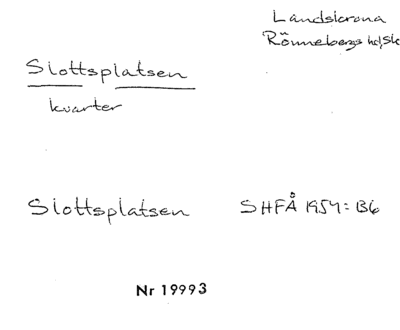 Landskrona
Rönnebergs hd, Sk
Slottsplatsen
kvarter
Slottsplatsen SHFÅ 1954: B6
Nr 19993